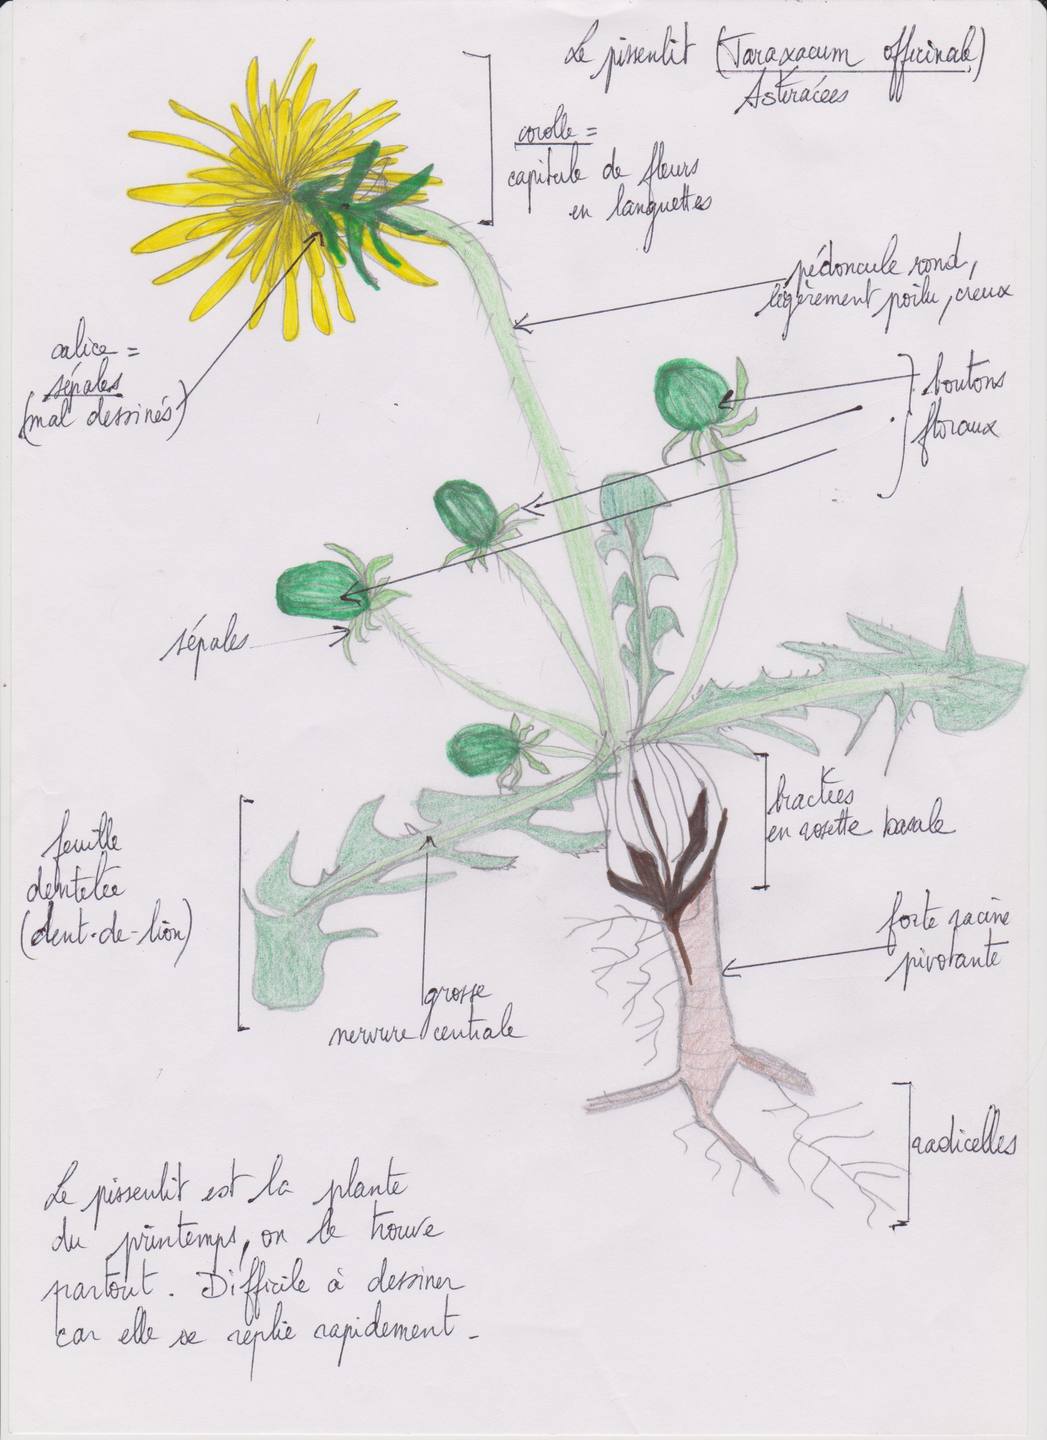 Le pissenlit (Taraxacum officinale)
Astéracées
corolle =
capitule de fleurs
en languettes
pédoncule rond,
légèrement poilu, creux
calice =
sépales
(mal dessinés)
boutons
floraux
sépales
bractées
en rosette basale
feuille
dentelée
(dent-de-lion)
forte racine
pivotante
grosse
nervure centrale
radicelles
Le pissenlit est la plante
du printemps, on le trouve
partout. Difficile à dessiner
car elle se replie rapidement_